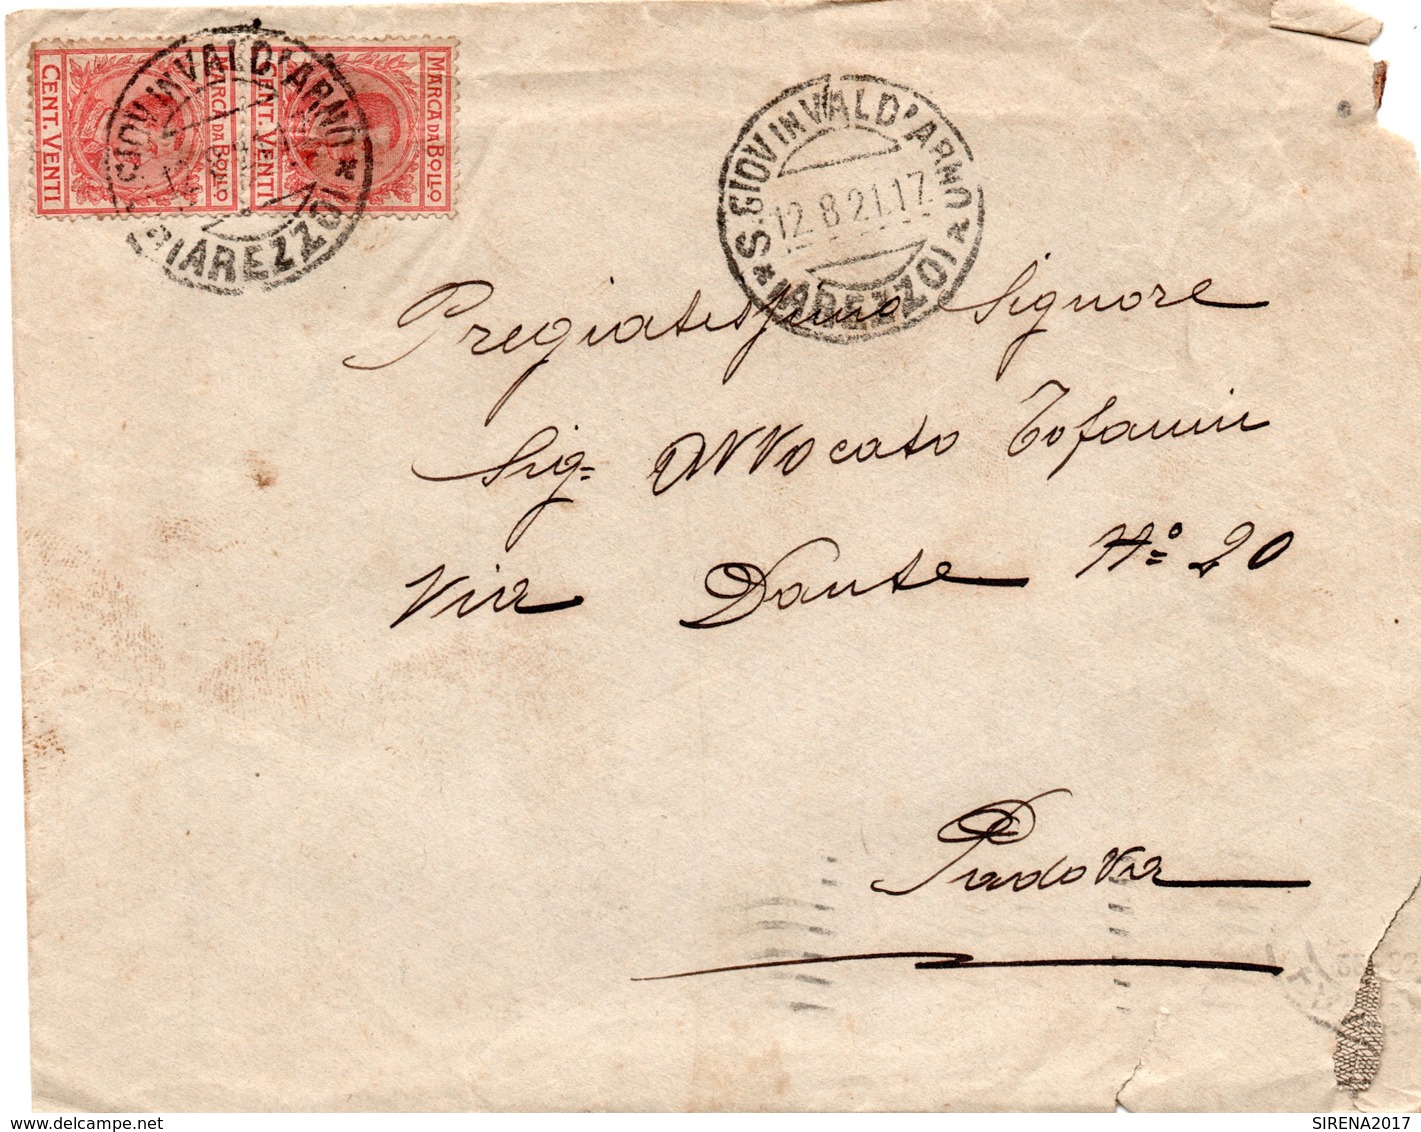 CENT. VENTI
MARCA DA BOLLO
CENT. VENTI
MARCA DA BOLLO
GIOV IN VALD'ARNO *
(AREZZO)
* S. GIOV IN VALD'ARNO *
12.8 21.17
(AREZZO)
Pregiatissimo Signore
Sig= Avvocato Tofanin
Via Dante N° 20
Padova
SIRENA2017